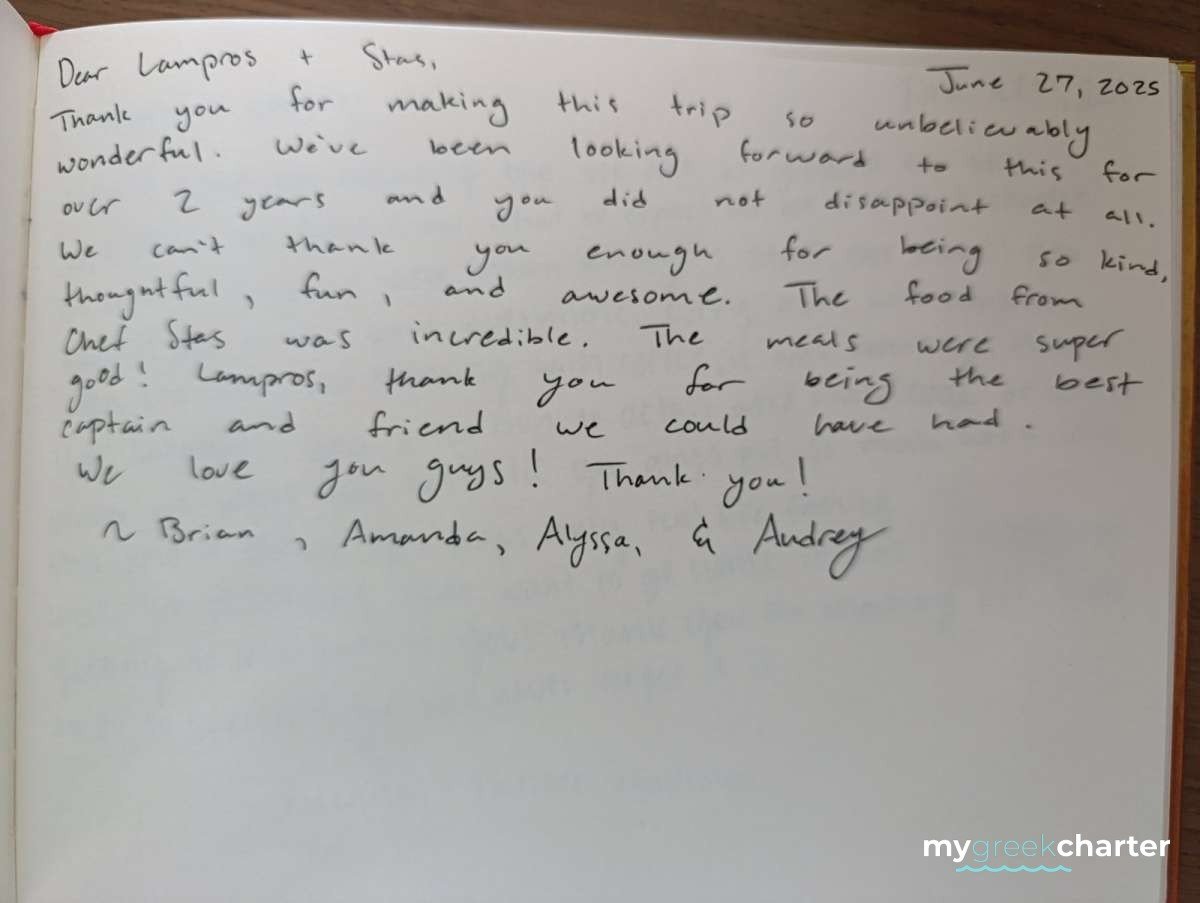 Dear Lampros + Stas,
June 27, 2025
Thank you for making this trip so unbelievably
wonderful. We've been looking forward to this for
over 2 years and you did not disappoint at all.
We can't thank you enough for being so kind,
thoughtful, fun, and awesome. The food from
Chef Stas was incredible. The meals were super
good! Lampros, thank you for being the best
captain and friend we could have had.
We love you guys! Thank you!
~ Brian, Amanda, Alyssa, & Audrey
mygreekcharter